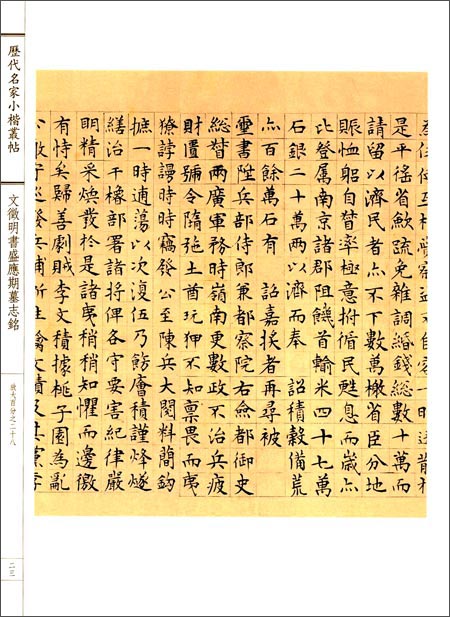 是平徭省歛疏免雜調緡錢総數十萬而
請留以濟民者亡不下數萬檄省臣分地
賑恤躬自督率極意拊循民甦息而歲亦
比登属南京諸郡阻饑首輸米四十七萬
石銀二十萬兩以濟而奉 詔積穀備荒
亦百餘萬石有 詔嘉者再尋被
璽書陞兵部侍郎兼都察院右僉都御史
総督兩廣軍務時嶺南更數政不治兵疲
財置彌令隋弛土酋玩狎不知稟畏而夷
獠謾時時竊發公至陳兵大閱料簡鈎
摭一時逋蕩以次復伍乃飭積謹烽燧
繕治干櫓部署諸將俾各守要害紀律嚴
明精采煥發於是諸夷稍稍知懼而邊徼
有恃矣歸善劇賊李文積據桃子園為亂
歷代名家小楷叢帖
文徵明書盛應期墓志銘
放大百分之二十八
二三